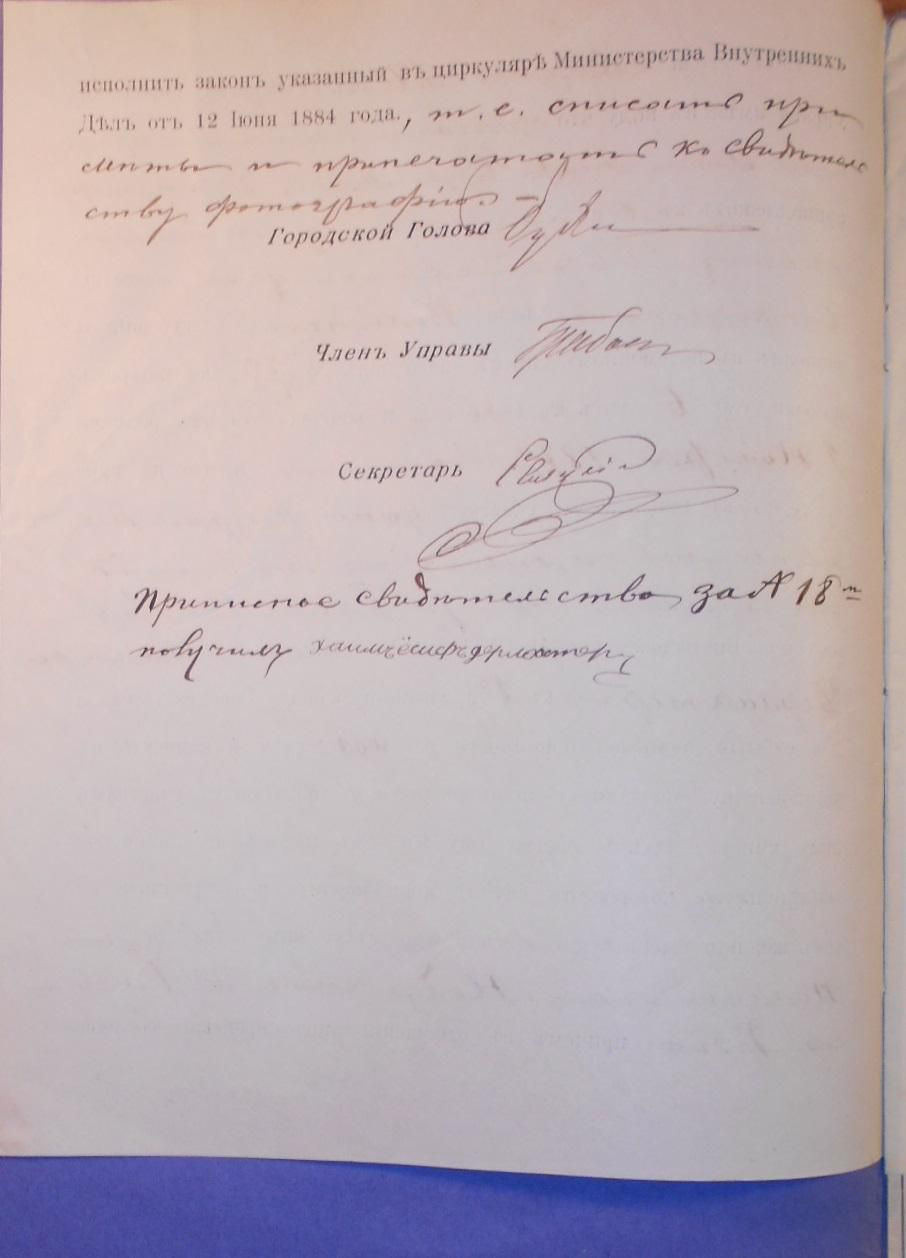 исполнить законъ указанный въ циркулярѣ Министерства Внутреннихъ
Дѣлъ отъ 12 Іюня 1884 года., т. е. списать при
мѣты и припечатать къ свидѣтель
ству фотографію. –
Городской Голова
Членъ Управы
Секретарь
Приписное свидѣтельство за № 18 м
получилъ хаимъ ёсифъ